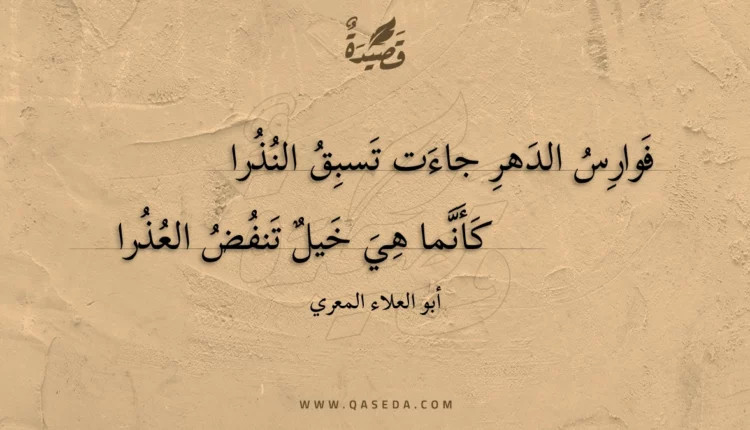 قَصِيدَةٌ
فَوارِسُ الدَهرِ جاءَت تَسبِقُ النُذُرا
كَأَنَّما هِيَ خَيلٌ تَنفُضُ العُذُرا
أبو العلاء المعري
WWW.QASEDA.COM